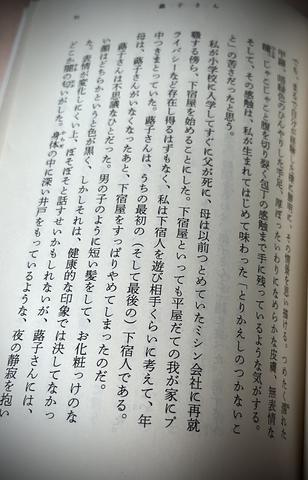 蕗子さん
91
甲羅、暗緑色のひんやりした手足、厚ぼったいわりになめらかな皮膚、無表情な
瞳、じゃとじゃとと腹を切り裂く包丁の感触まで手に残っているような気がする。
そして、その感触は、私が生まれてはじめて味わった「とりかえしのつかないこ
と」の苦さだったと思う。
私が小学校に入学してすぐに父が死に、母は以前つとめていたミシン会社に再就
職する傍ら、下宿屋を始めることにした。下宿屋といっても平屋だての我が家にプ
ライバシーなど存在し得るはずもなく、私は下宿人を遊び相手くらいに考えて、年
中つきまとっていた。蕗子さんは、うちの最初の（そして最後の）下宿人である。
母は、蕗子さんがいなくなったあと、下宿屋をすっぱりやめてしまったのだ。
蕗子さんは不思議なひとだった。男の子のように短い髪をして、お化粧っけのな
い顔はどちらかというと色が黒く、しかしそれは、健康的な印象では決してなかっ
た。表情が変化しにくい上、ぼそぼそと話すせいかもしれないが、蕗子さんには、
どこか闇の匂いがした。身体の中に深い井戸をもっているような、夜の静寂を抱い